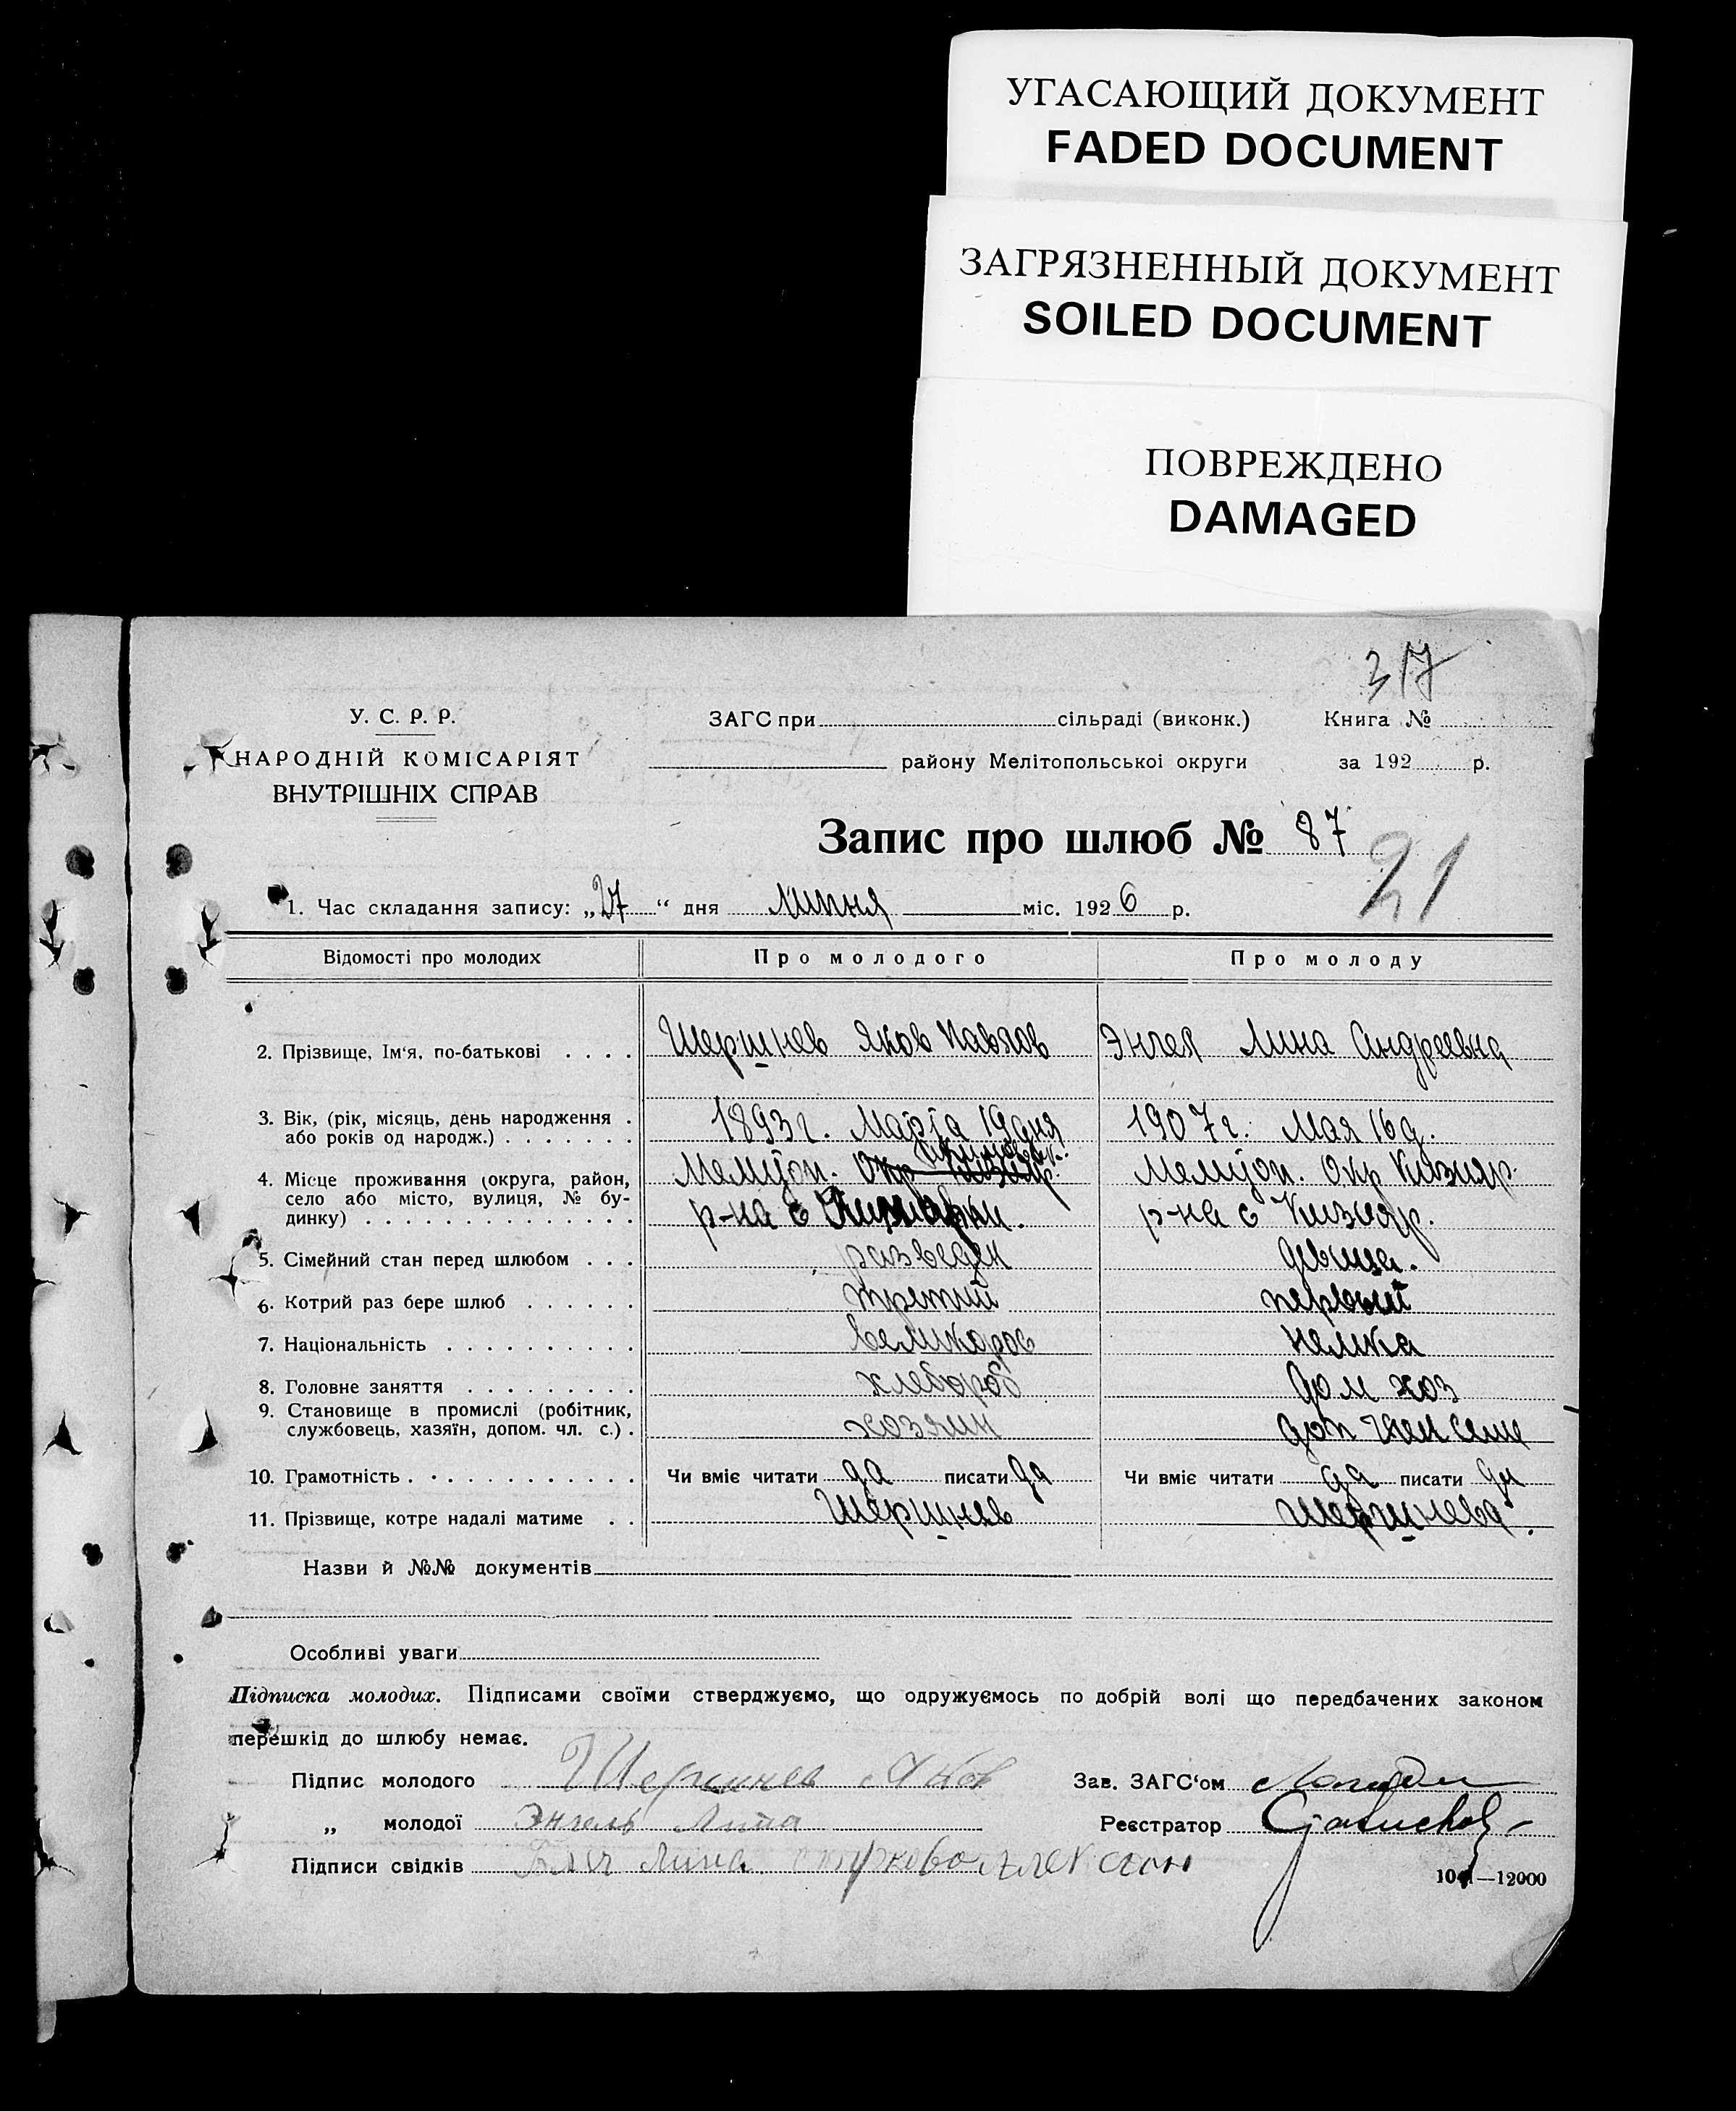 УГАСАЮЩИЙ ДОКУМЕНТ
FADED DOCUMENT
ЗАГРЯЗНЕННЫЙ ДОКУМЕНТ
SOILED DOCUMENT
ПОВРЕЖДЕНО
DAMAGED
317
У. С. Р. Р.
НАРОДНІЙ КОМІСАРІЯТ
ВНУТРІШНІХ СПРАВ
ЗАГС при сільраді (виконк.) Книга №
району Мелітопольської округи за 192 р.
Запис про шлюб № 87
21
1. Час складання запису: „27“ дня липня міс. 1926 р.
Відомості про молодих Про молодого Про молоду
2. Прізвище, Ім'я, по-батькові . . . . Шершнев Яков Павлов Энгел Лина Андреевна
3. Вік, (рік, місяць, день народження . або років од народж.) . . . . . . . 1893 г. Марта 19 дня 1907 г. Мая 16 д.
4. Місце проживання (округа, район, Мелитоп. Окр Мелитоп. Окр Кизияр
село або місто, вулиця, № бу- р-на с р-на с Кизияр.
динку) . . . . . . . . . . . . . .
5. Сімейний стан перед шлюбом . . . разведен девица.
6. Котрий раз бере шлюб . . . . . . третий первый
7. Національність . . . . . . . . . . великорос немка
8. Головне заняття . . . . . . . . . хлебороб дом хоз
9. Становище в промислі (робітник,
службовець, хазяїн, допом. чл. с.) . хозяин доп член семи
10. Грамотність . . . . . . . . . . . Чи вміє читати да писати да Чи вміє читати да писати да
11. Прізвище, котре надалі матиме . . Шершнев Шершнева.
Назви й №№ документів
Особливі уваги
Підписка молодих. Підписами своїми стверджуємо, що одружуємось по добрій волі що передбачених законом
перешкід до шлюбу немає.
Підпис молодого Шершнев Яков Зав. ЗАГС'ом
„ молодої Энгель Лина Реєстратор
Підписи свідків Лина
—12000